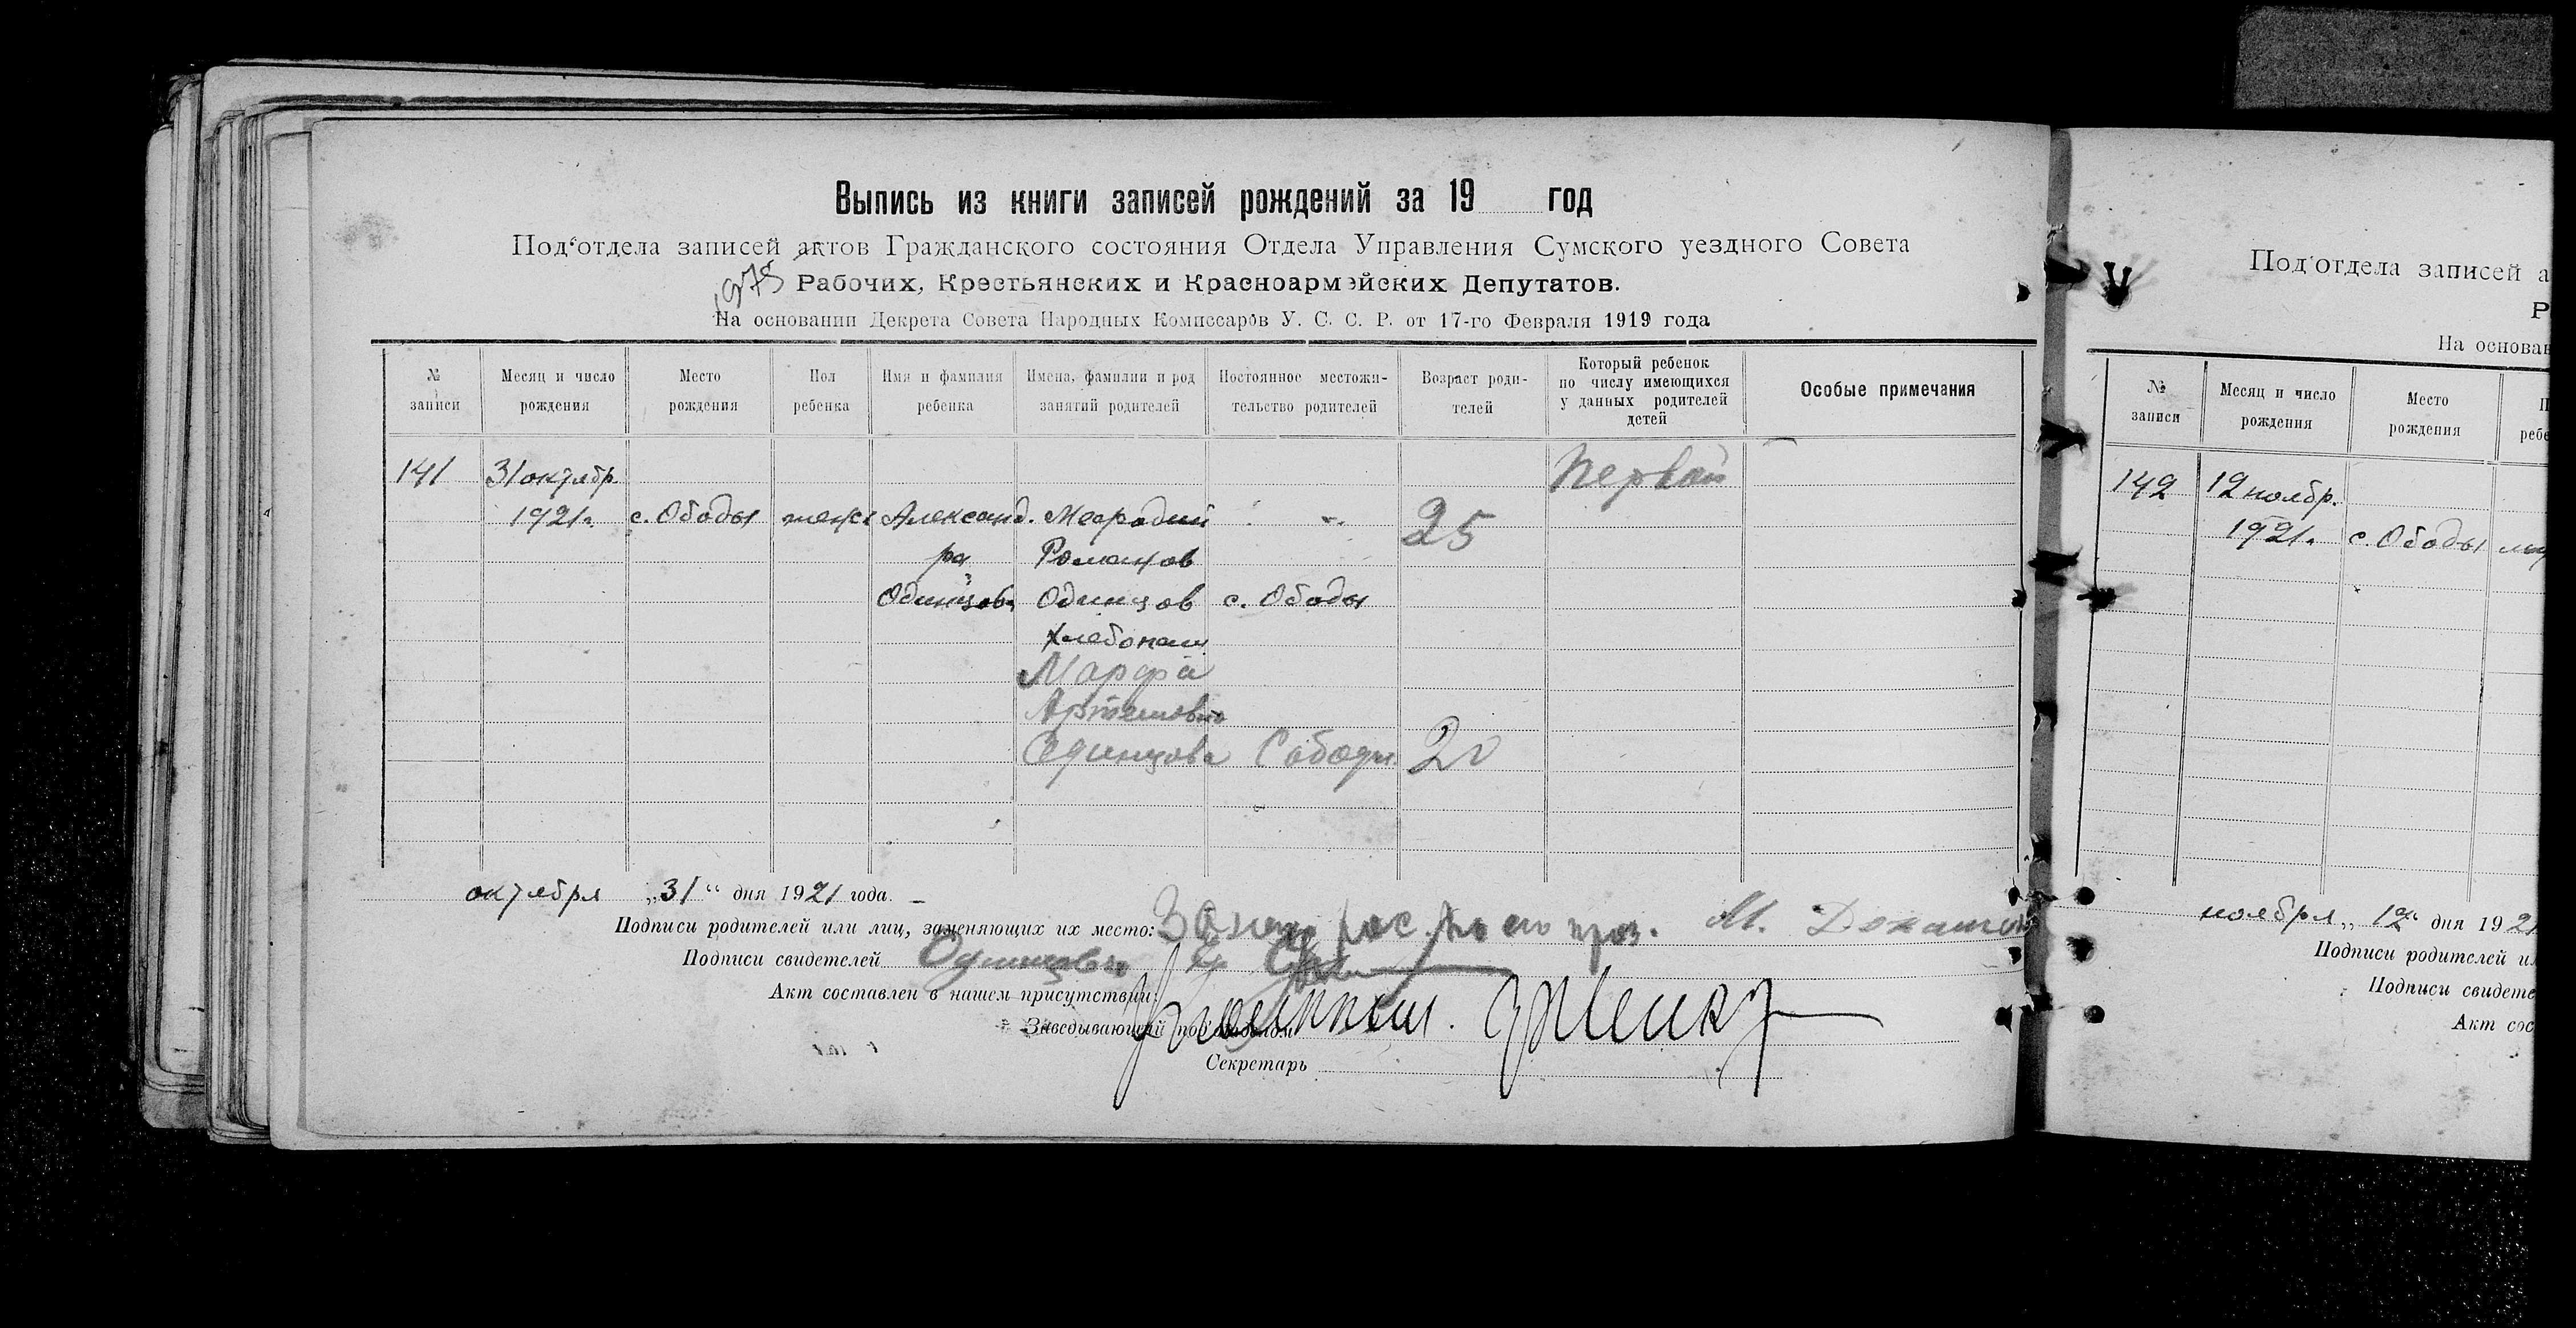 Выпись из книги записей рождений за 19 год
Под'отдела записей актов Гражданского состояния Отдела Управления Сумского уездного Совета
1975 Рабочих, Крестьянских и Красноармейских Депутатов.
На основании Декрета Совета Народных Комиссаров У. С. С. Р. от 17-го Февраля 1919 года
№ записи
Месяц и число рождения
Место рождения
Пол ребенка
Имя и фамилия ребенка
Имена, фамилии и род занятий родителей
Постоянное местожительство родителей
Возраст родителей
Который ребенок по числу имеющихся у данных родителей детей
Особые примечания
141 31 октябр. Первый
1921г. с. Ободы женск Александ. Мефодий 25
ра Романов
Одинцова Одинцов с. Ободы
хлебопаш.
Марфа
Артемовна
Одинцова С Ободы 20
октября „31“ дня 1921 года.
Подписи родителей или лиц, заменяющих их место:
Подписи свидетелей
Акт составлен в нашем присутствии:
Заведывающий под'отделом
Секретарь
Под'отдела записей а
Р
На основан
№ записи
Месяц и число рождения
Место рождения
П
ребе
142 12 ноябр.
1921г. с. Ободы
ноября „12“ дня 192
Подписи родителей и
Подписи свидете
Акт сос